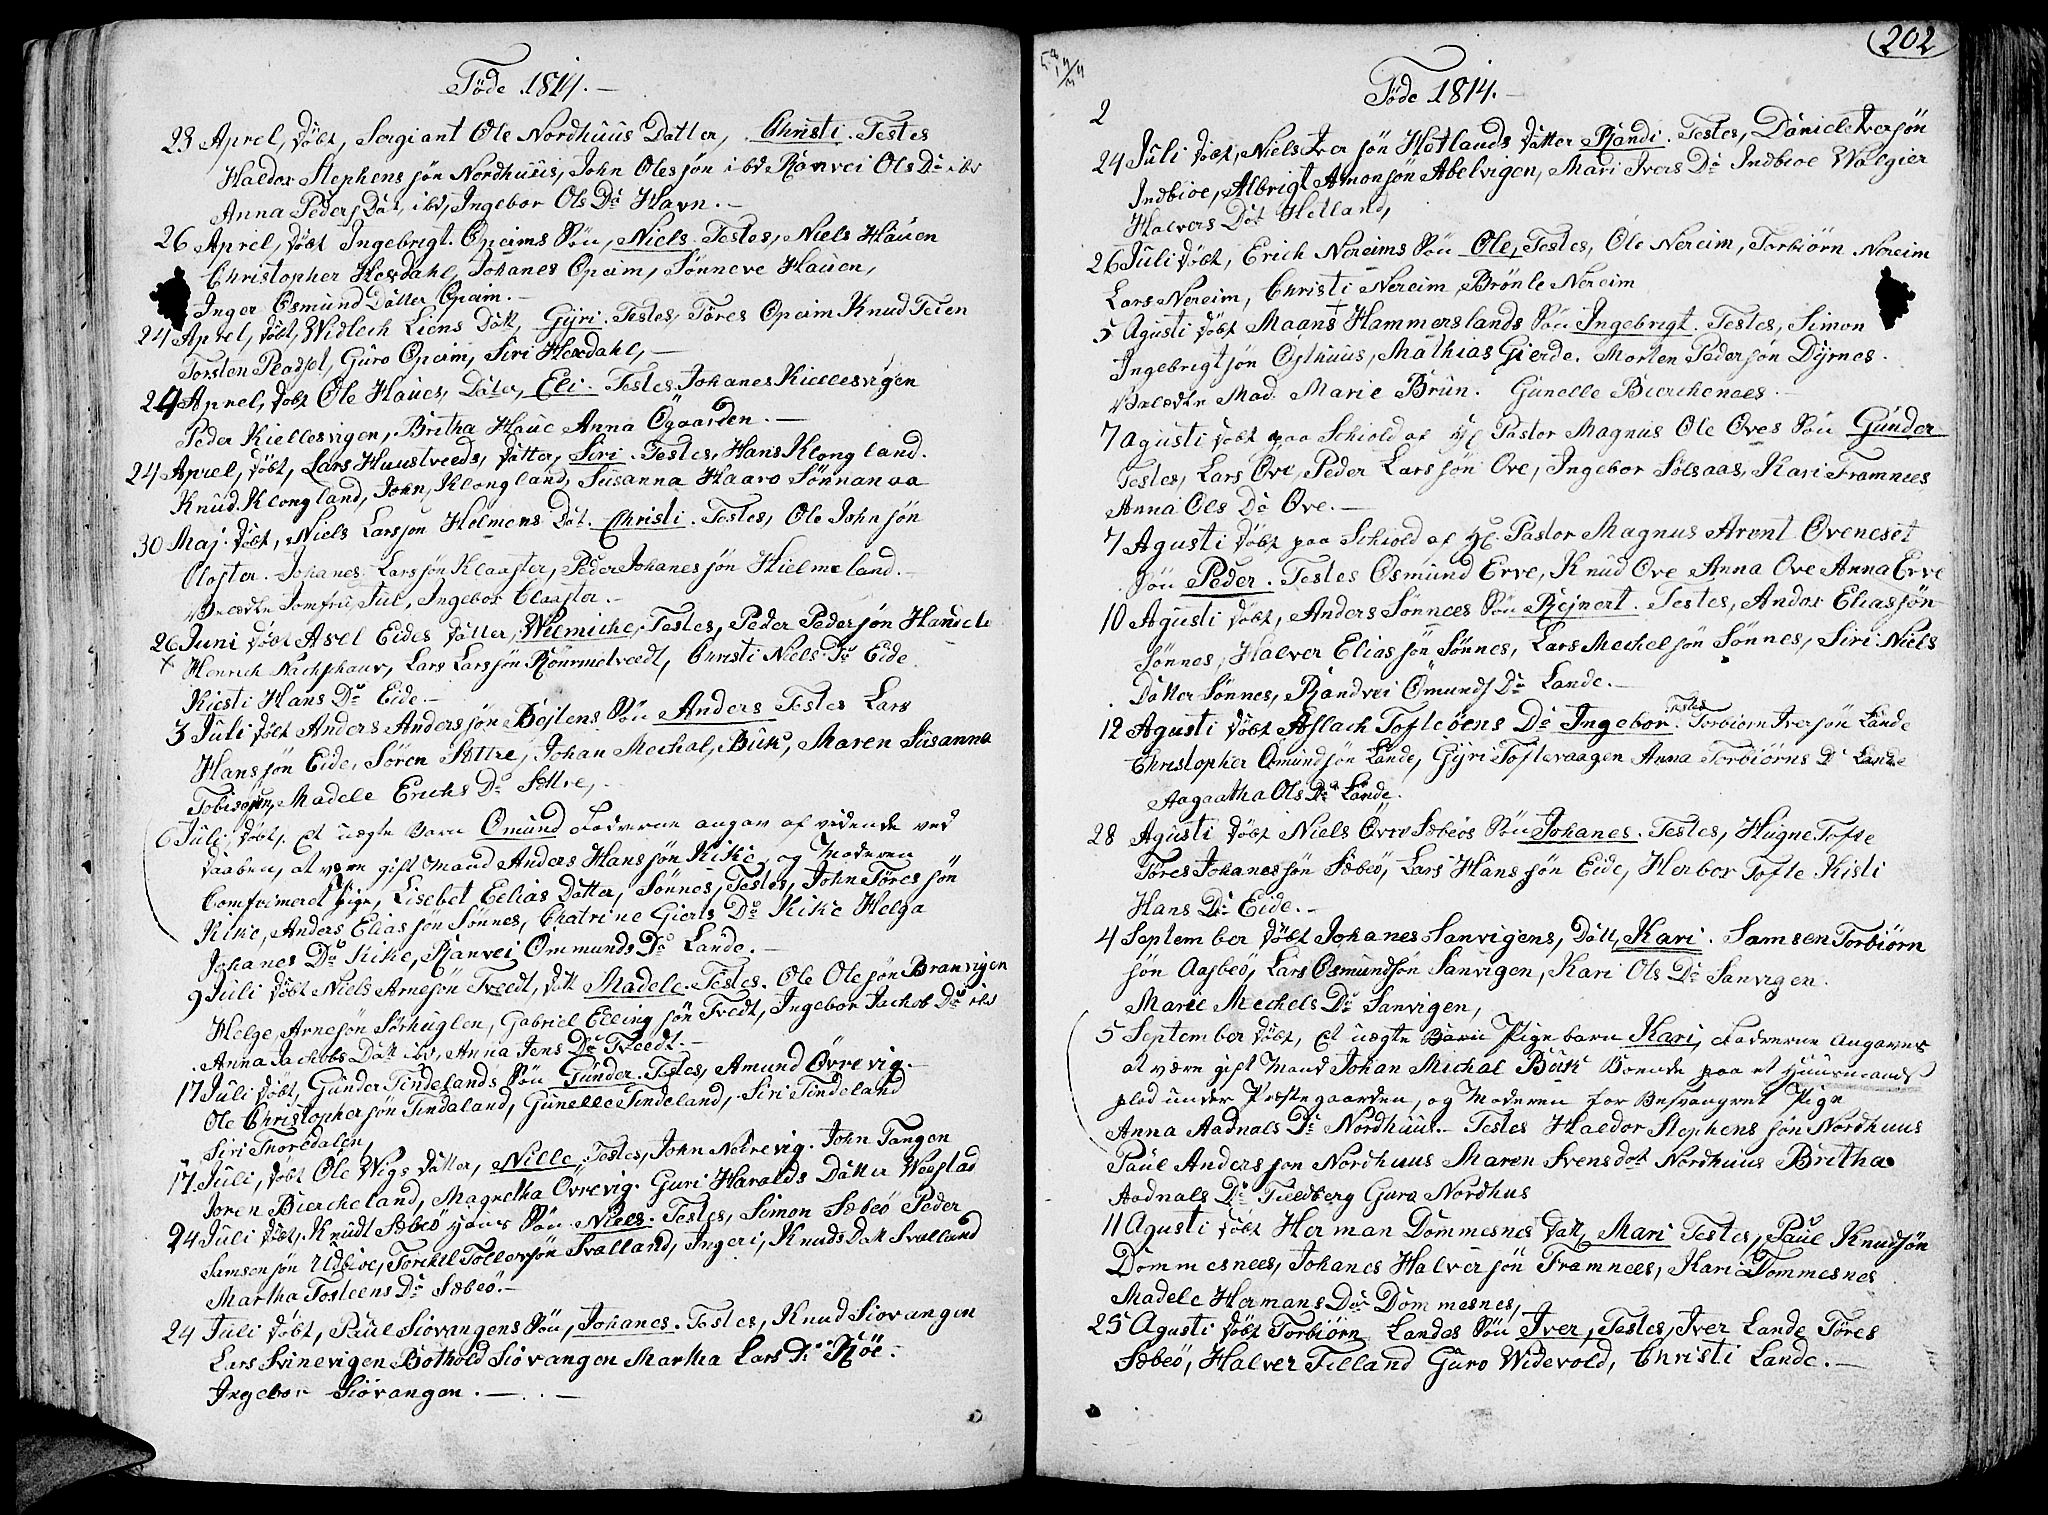 Töde 1814.
23 Aprel, döbt, Sergiant Ole Nordhuus Datter, Christi. Testes
Haldor Stephens sön Nordhuus, John Olessön ibd Ranvei Ols Dr ibd
Anna Peders Dat, ibd, Ingebor Ols Dr Havn.
26 Aprel, döbt Ingebrigt Opeims Sön, Niels. Testes, Niels Hauen
Christopher Hexdahl, Johanes Opeim, Sönneve Hauen,
Inger Osmund Datter Opeim.
24 Aprel, döbt, Widlech Liens Datt, Gyri. Testes, Töres Opeim Knud Teien
Torsten Pladset, Guro Opeim, Siri Hexdahl,
24 Aprel, döbt Ole Haues, Datter, Eli. Testes Johanes Kiellesvigen
Peder Kiellesvigen, Britha Haue Anna Ögaarden.
24 Aprel, döbt, Lars Huustveeds, datter, Siri. Testes, Hans Klongland.
Knud Klongland, John, Klongland, Susanna Haaro Sönnanaa
30 Maj. döbt, Niels Larsson Holmens Dat. Christi. Testes, Ole John sön
Closter. Johanes Lars sön Klaaster, Peder Johanes sön Hielmeland.
Jomfru Jul, Ingebor Claaster.
26 Juni döbt Axel Eides datter, Wilmiche, Testes, Peder Peder sön Handeli
x Henrich, Lars Lars sön Rönnmetveedt, Christi Niels Dr Eide.
Kiesti Hans Dr Eide.
3 Juli döbt Anders Anders sön Böjtens Sön Anders Testes Lars
Hans sön Eide, Sören Sættre, Johan Mechal, Buk, Maren Susanna
Tobisson, Madele Erichs Dr Sættre,
6 Juli, döbt, Et uægte Barn Omund Faderne angav af vedende ved
daaben, at være gift Mand Anders Hans sön Kike, og Moderen
Comfirmeret Pige, Lisebet Eelias Datter, Sönnes, Testes, John Töres sön
Kike, Anders Elias sön Sönnes, Chatrine Gierts Dr Kike Helga
Johanes Dr Kike, Ranvei Ommunds Dr Lande.
9 Juli döbt Niels Arnesön Tveedt, datt Madele. Testes. Ole Olesön Branvigen
Helge, Arnesön Sörhuglen, Gabriel Elling sön Tvedt, Ingebor Jachob Dr ibd
Anna Jachobs Datt ibd, Anna Jens Dr Tveedt.
17 Juli, döbt, Gunder Tindelands Sön Gunder. Testes, Amund Övrevig.
Ole Christopher sön Tindaland, Gunelle Tindeland, Siri Tindeland
Siri Thorsdalen,
17 Juli, döbt Ole Wigs datter, Nille. Testes, John Nedrevig. John Tangen
Joren Bierckeland, Magretha Övrevig. Guri Haralds Datter Wegstad
24 Juli döbt, Knudt Sæbeö Sön Niels. Testes, Simon Sæbeö Peder
Samson sön Udbioe, Torckel Tollevsön Svalland, Ingeri, Knuds Datt Svalland
Martha Tosteens Dr Sæbeö.
24 Juli döbt, Paul Siovangens Sön, Johanes. Testes, Knud Siovangen
Lars Svinevigen Bothold Siovangen Martha Lars Dr Röe.
Ingebor Siovangen.
202
Töde 1814.
2
24 Juli döbt, Niels Iver sön Hetlands datter Randi. Testes, Daniel Iversön
Indbioe, Albrigt Amonsön Abelvigen, Mari Ivers Dr Indbioe Walgier
Halvers Dat Hetland,
26 Juli döbt, Erich Nereims Sön Ole, Testes, Ole Nereim, Torbiörn Nereim
Lars Nereim, Christi Nereim Brönle Nereim
5 Agusti döbt Maans Hammerslands Sön Ingebrigt. Testes, Simon
Ingebrigtsön Osthuus, Mathias Gierde. Morten Pedersön Dyrnes.
Mad. Marie Brun. Gunelle Bierchenees.
7 Agusti döbt paa Schiold af Hl Pastor Magnus Ole Oves Sön Gunder
Testes, Lars Ove, Peder Lars sön Ove, Ingebor Solsaas, Kari Framnees
Anna Ols Dr Ove.
7 Agusti döbt paa Schiold af Hl. Pastor Magnus Arent Oveneset
Sön Peder. Testes Osmund Erve, Knud Ove Anna Ove Anna Erve
10 Agusti döbt, Anders Sönnees Sön Rejnert. Testes, Andor Eliassön
Sönnes, Halver Elias sön Sönnes, Lars Mechelsön Sönnes, Siri Niels
Datter Sönnes, Randvei Omunds Dr Lande.
12 Agusti döbt Aslach Tofteöens Dr Ingebor. Testes Torbiorn Iversön Lande
Christopher Omundsön Lande, Gyri Toftevaagen Anna Torbiörns Dr Lande
Aagaatha Ols Dr Lande.
28 Agusti döbt Niels Övre Sæbeös Sön Johanes. Testes, Hugne Tofte
Töres Johanes sön Sæbeö, Lars Hans sön Eide, Herbor Tofte Kisti
Hans Dr Eide.
4 September döbt Johanes Sanvigens, Datt, Kari. Samson Torbiörn
sön Aasbeö, Lars Osmundsön Sanvigen, Kari Ols Dr Sanvigen.
Marie Mechels Dr Sanvigen,
5 September döbt, Et uægte Barn Pige barn Kari, Faderne Angaves
at være gift Mand Johan Michal Buk Boende paa et Huusmands
plads under Præstegaarden, og Moderen for Besvangret Pige
Anna Aadnals Dr Nordhuus. Testes Haldor Stephens sön Nordhuus
Paul Anders son Nordhuus Maren Svensdot Nordhuus Britha
Aadnals Dr Tieldberg Guro Nordhus
11 Agusti döbt Herman Dommesnes datt, Mari Testes, Paul Knudsön
Dommesnees, Johanes Halver sön Framnees, Kari Dommesnes
Madele Hermans Dr Dommesnes,
25 Agusti döbt Torbiörn Landes Sön Iver, Testes, Iver Lande Töres
Sæbeö, Halver Tilland Guro Widevold, Christi Lande.